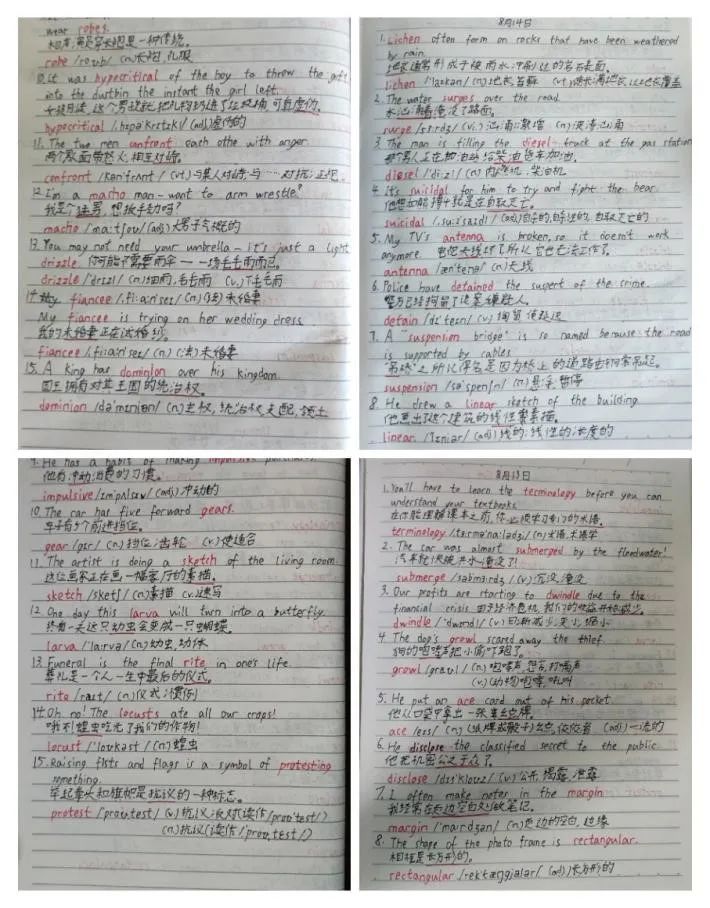 wear robes.
robe /roʊb/ (n)长袍,礼服
10.it was hypecritical of the boy to throw the gift
into the dustbin the instant the girl left.
女孩刚走,这个男孩就把礼物扔进了垃圾桶,可真虚伪。
hypecritical (adj)虚伪的
11.The two men confront each othe with anger.
confront /kənˈfrʌnt/ (vt)
12.I'm a macho man-want to arm wrestle?
我是个猛男,想扳手劲吗?
macho /ˈmɑːtʃoʊ/ (adj)大男子气概的
13.You may not need your umbrella-it's just a light
drizzle.你可能不需要雨伞——一场毛毛雨而已。
drizzle /ˈdrɪzl/ (n)细雨,毛毛雨 (v)下毛毛雨
14. fiancee /ˌfiːɑːnˈseɪ/ (n)(法)未婚妻
My fiancee is trying on her wedding dress
我的未婚妻正在试婚纱。
fiancee /ˌfiːɑːnˈseɪ/ (n)(法)未婚妻
15.A king has dominion over his kingdom.
国王拥有对其王国的统治权。
dominion /dəˈmɪniən/ (n)主权,统治权,支配,领土
8月14日
1.Lichen often form on rocks that have been weathered
by rain.
lichen /ˈlaɪkən/ (n)地衣,苔藓
2.The water surges over the road.
水汹涌着淹没了路面。
surge /sɜːrdʒ/ (v)
3.The man is filling the diesel-truck at the gas station
那个男人正在加油站给柴油货车加油。
diesel /ˈdiːzl/ (n)内燃机,柴油机
4.It's suicidal for him to try and fight the bear.
他想和熊搏斗就是在自取灭亡。
suicidal /ˌsuːɪˈsaɪdl/ (adj)自杀的,自毁的,自取灭亡的
5.My TV's antenna is broken, so it doesn't work
anymore. 电视天线坏了所以它也无法工作了。
antenna /ænˈtenə/ (n)天线
6.Police have detained the supect of the crime.
警方已经拘留了这案嫌疑人。
detain /dɪˈteɪn/ (v)
7.A "suspension bridge" is so named because the road
is supported by cables
"吊桥"之所以得名是因为桥上的道路由钢索吊起。
suspension /səˈspenʃn/ (n)悬浮,暂停
8.He drew a linear sketch of the building.
他画出了这个建筑的线性素描。
linear /ˈlɪniər/ (adj)线的,线性的,长度的
9.He has a habit of making impulsive
他有冲动消费的习惯。
impulsive /ɪmˈpʌlsɪv/ (adj)冲动的
10.The car has five forward gears.
车子有5个前进挡位。
gear /ɡɪr/ (n)挡位,齿轮 (v)使适合
11.The artist is doing a sketch of the living room.
这位画家正在画一幅客厅的素描。
sketch /sketʃ/ (n)素描 (v)速写
12.One day this larva will turn into a butterfly.
终有一天这只幼虫会变成一只蝴蝶。
larva /ˈlɑːrvə/ (n)幼虫,幼体
13.Funeral is the final rite in one's life.
葬礼是一个人一生中最后的仪式。
rite /raɪt/ (n)仪式,惯例
14.Oh no! The locusts ate all our crops!
哦不!蝗虫吃光了我们的作物!
locust /ˈloʊkəst/ (n)蝗虫
15.Raising fists and flags is a symbol of protesting
something.
举起拳头和旗帜是抗议的一种标志。
protest /prəˈtest/ (v)抗议,反对(读作/prəˈtest/)
(n)抗议(读作/ˈproʊtest/)
8月13日
1.You'll have to learn the terminology before you can
understand your textbooks.
在你能理解课本之前,你必须学习专门的术语。
terminology /ˌtɜːrməˈnɑːlədʒi/ (n)术语,术语学
2.The car was almost submerged by the floodwater!
汽车都快被洪水淹没了!
submerge /səbˈmɜːrdʒ/ (v)沉没,淹没
3.Our profits are starting to dwindle due to the
financial crisis 由于经济危机,我们的收益开始减少。
dwindle /ˈdwɪndl/ (v)日渐减少,变小,缩小
4.The dog's growl scared away the thief.
狗的咆哮声把小偷吓跑了。
growl /ɡraʊl/ (n)咆哮声,怨言,打嗝声
(v)(动物)咆哮,吼叫
5.He put an ace card out of his pocket.
ace /eɪs/ (n) (adj)一流的
6.He disclose the classified secret to the public
他把机密公之于众了。
disclose /dɪsˈkloʊz/ (v)公开,揭露,泄露
7.I often make notes in the margin
我经常在页边空白处做笔记。
margin /ˈmɑːrdʒən/ (n)页边的空白,边缘
8.The shape of the photo frame is rectangular.
相框是长方形的。
rectangular /rekˈtæŋɡjələr/ (adj)长方形的